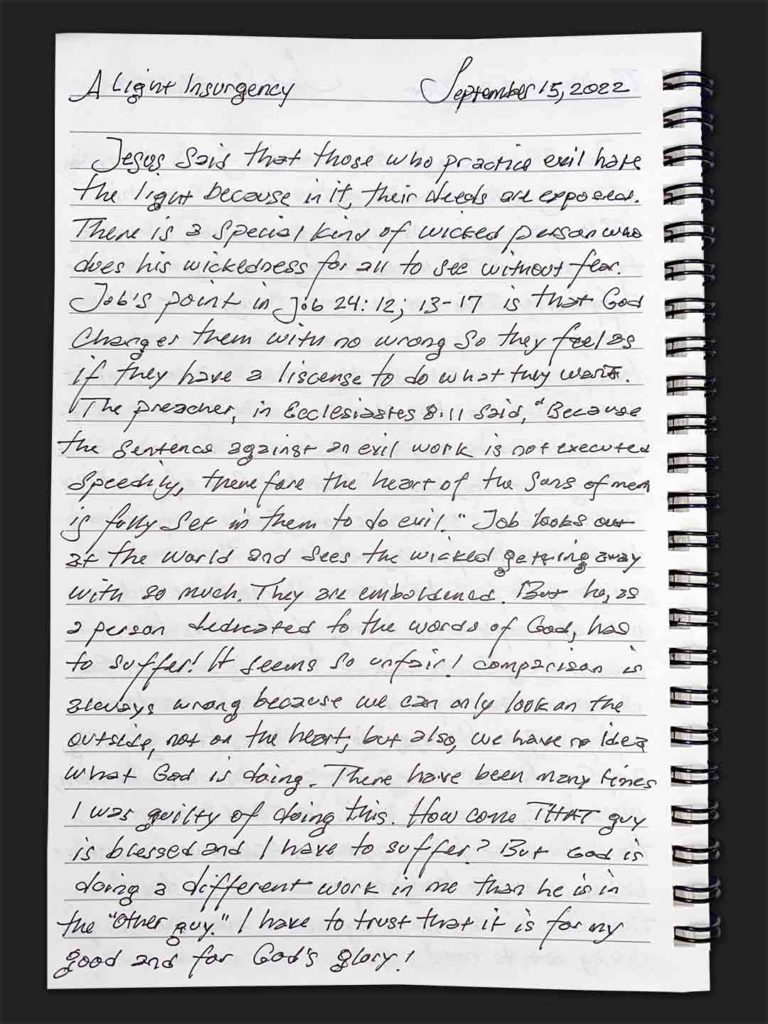 A Light Insurgency September 15, 2022
Jesus said that those who practice evil hate
the light because in it, their deeds are exposed.
There is a special kind of wicked person who
does his wickedness for all to see without fear.
Job's point in Job 24:12; 13-17 is that God
charges them with no wrong so they feel as
if they have a liscense to do what they want.
The preacher, in Ecclesiastes 8:11 said, "Because
the sentence against an evil work is not executed
speedily, therefore the heart of the sons of men
is fully set in them to do evil." Job looks out
at the world and sees the wicked getting away
with so much. They are emboldened. But he, as
a person dedicated to the words of God, has
to suffer! It seems so unfair! Comparison is
always wrong because we can only look on the
outside, not on the heart, but also, we have no idea
what God is doing. There have been many times
I was guilty of doing this. How come THAT guy
is blessed and I have to suffer? But God is
doing a different work in me than he is in
the "other guy." I have to trust that it is for my
good and for God's glory!